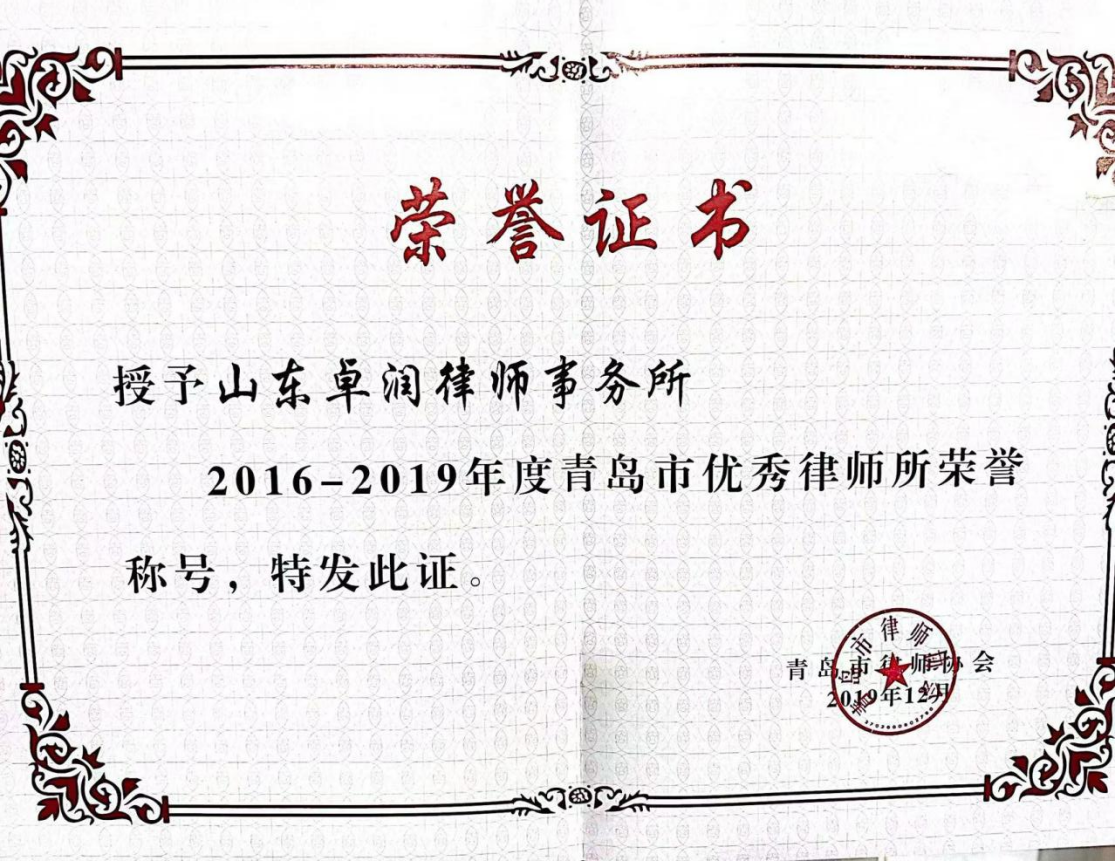 荣誉证书
授予山东卓润律师事务所
2016-2019年度青岛市优秀律师所荣誉
称号，特发此证。
青岛市律师协会
2019年12月
青岛市律师协会